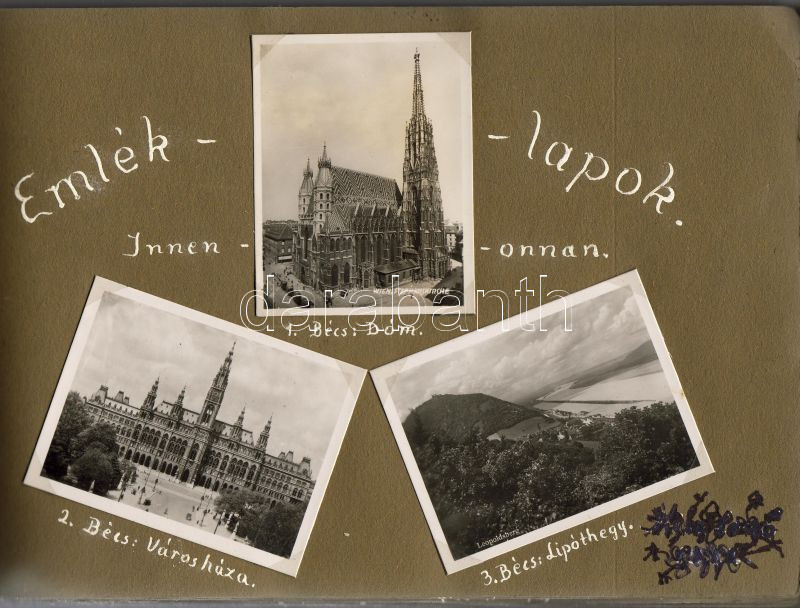 Emlék - - lapok.
Innen - - onnan.
WIEN, STEPHANSKIRCHE
darabanth
1. Bécs: Dóm.
Leopoldsberg
2. Bécs: Városháza.
3. Bécs: Lipóthegy.